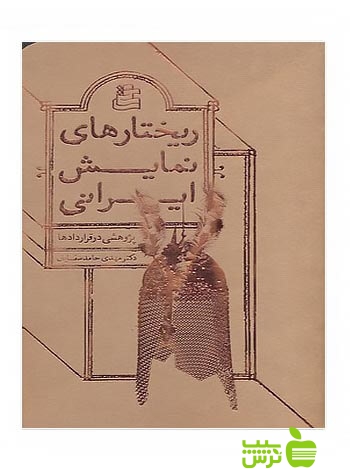 ریختارهای
نمایش
ایرانی
پژوهشی در قراردادها
دکتر مهدی حامد سقایان
سیب
ترش